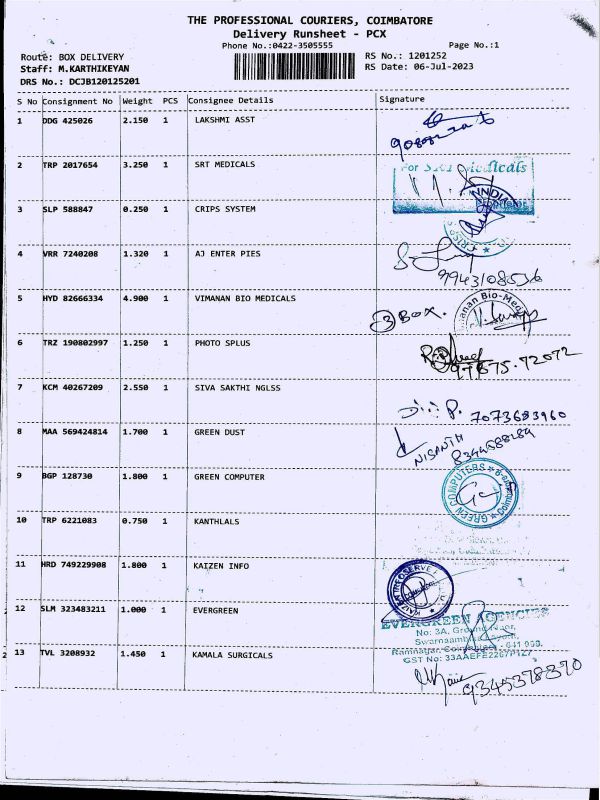 THE PROFESSIONAL COURIERS, COIMBATORE
Delivery Runsheet - PCX
Phone No.:0422-3505555 Page No.:1
Route: BOX DELIVERY RS No.: 1201252
Staff: M.KARTHIKEYAN RS Date: 06-Jul-2023
DRS No.: DCJB120125201
S No Consignment No Weight PCS Consignee Details Signature
1 DDG 425026 2.150 1 LAKSHMI ASST
2 TRP 2017654 3.250 1 SRT MEDICALS
For SRT Medicals
3 SLP 588847 0.250 1 CRIPS SYSTEM
INDIA
4 VRR 7240208 1.320 1 AJ ENTER PIES
9943108536
5 HYD 82666334 4.900 1 VIMANAN BIO MEDICALS
3 BOX.
6 TRZ 190802997 1.250 1 PHOTO SPLUS
97875.72072
7 KCM 40267209 2.550 1 SIVA SAKTHI NGLSS
7073683960
8 MAA 569424814 1.700 1 GREEN DUST
NISANTH
8344588289
9 BGP 128730 1.800 1 GREEN COMPUTER
GREEN COMPUTERS
10 TRP 6221083 0.750 1 KANTHLALS
11 HRD 749229908 1.800 1 KAIZEN INFO
12 SLM 323483211 1.000 1 EVERGREEN
EVERGREEN AGENCIES
No: 3A, Ground Floor,
13 TVL 3208932 1.450 1 KAMALA SURGICALS
9345378370